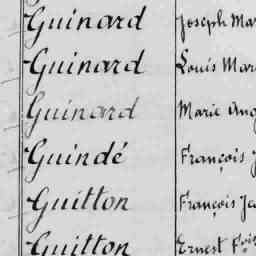 Guinard Joseph Mar
Guinard Louis Mar
Guinard Marie Ang
Guindé François J
Guitton François Je
Guitton Ernest Fois